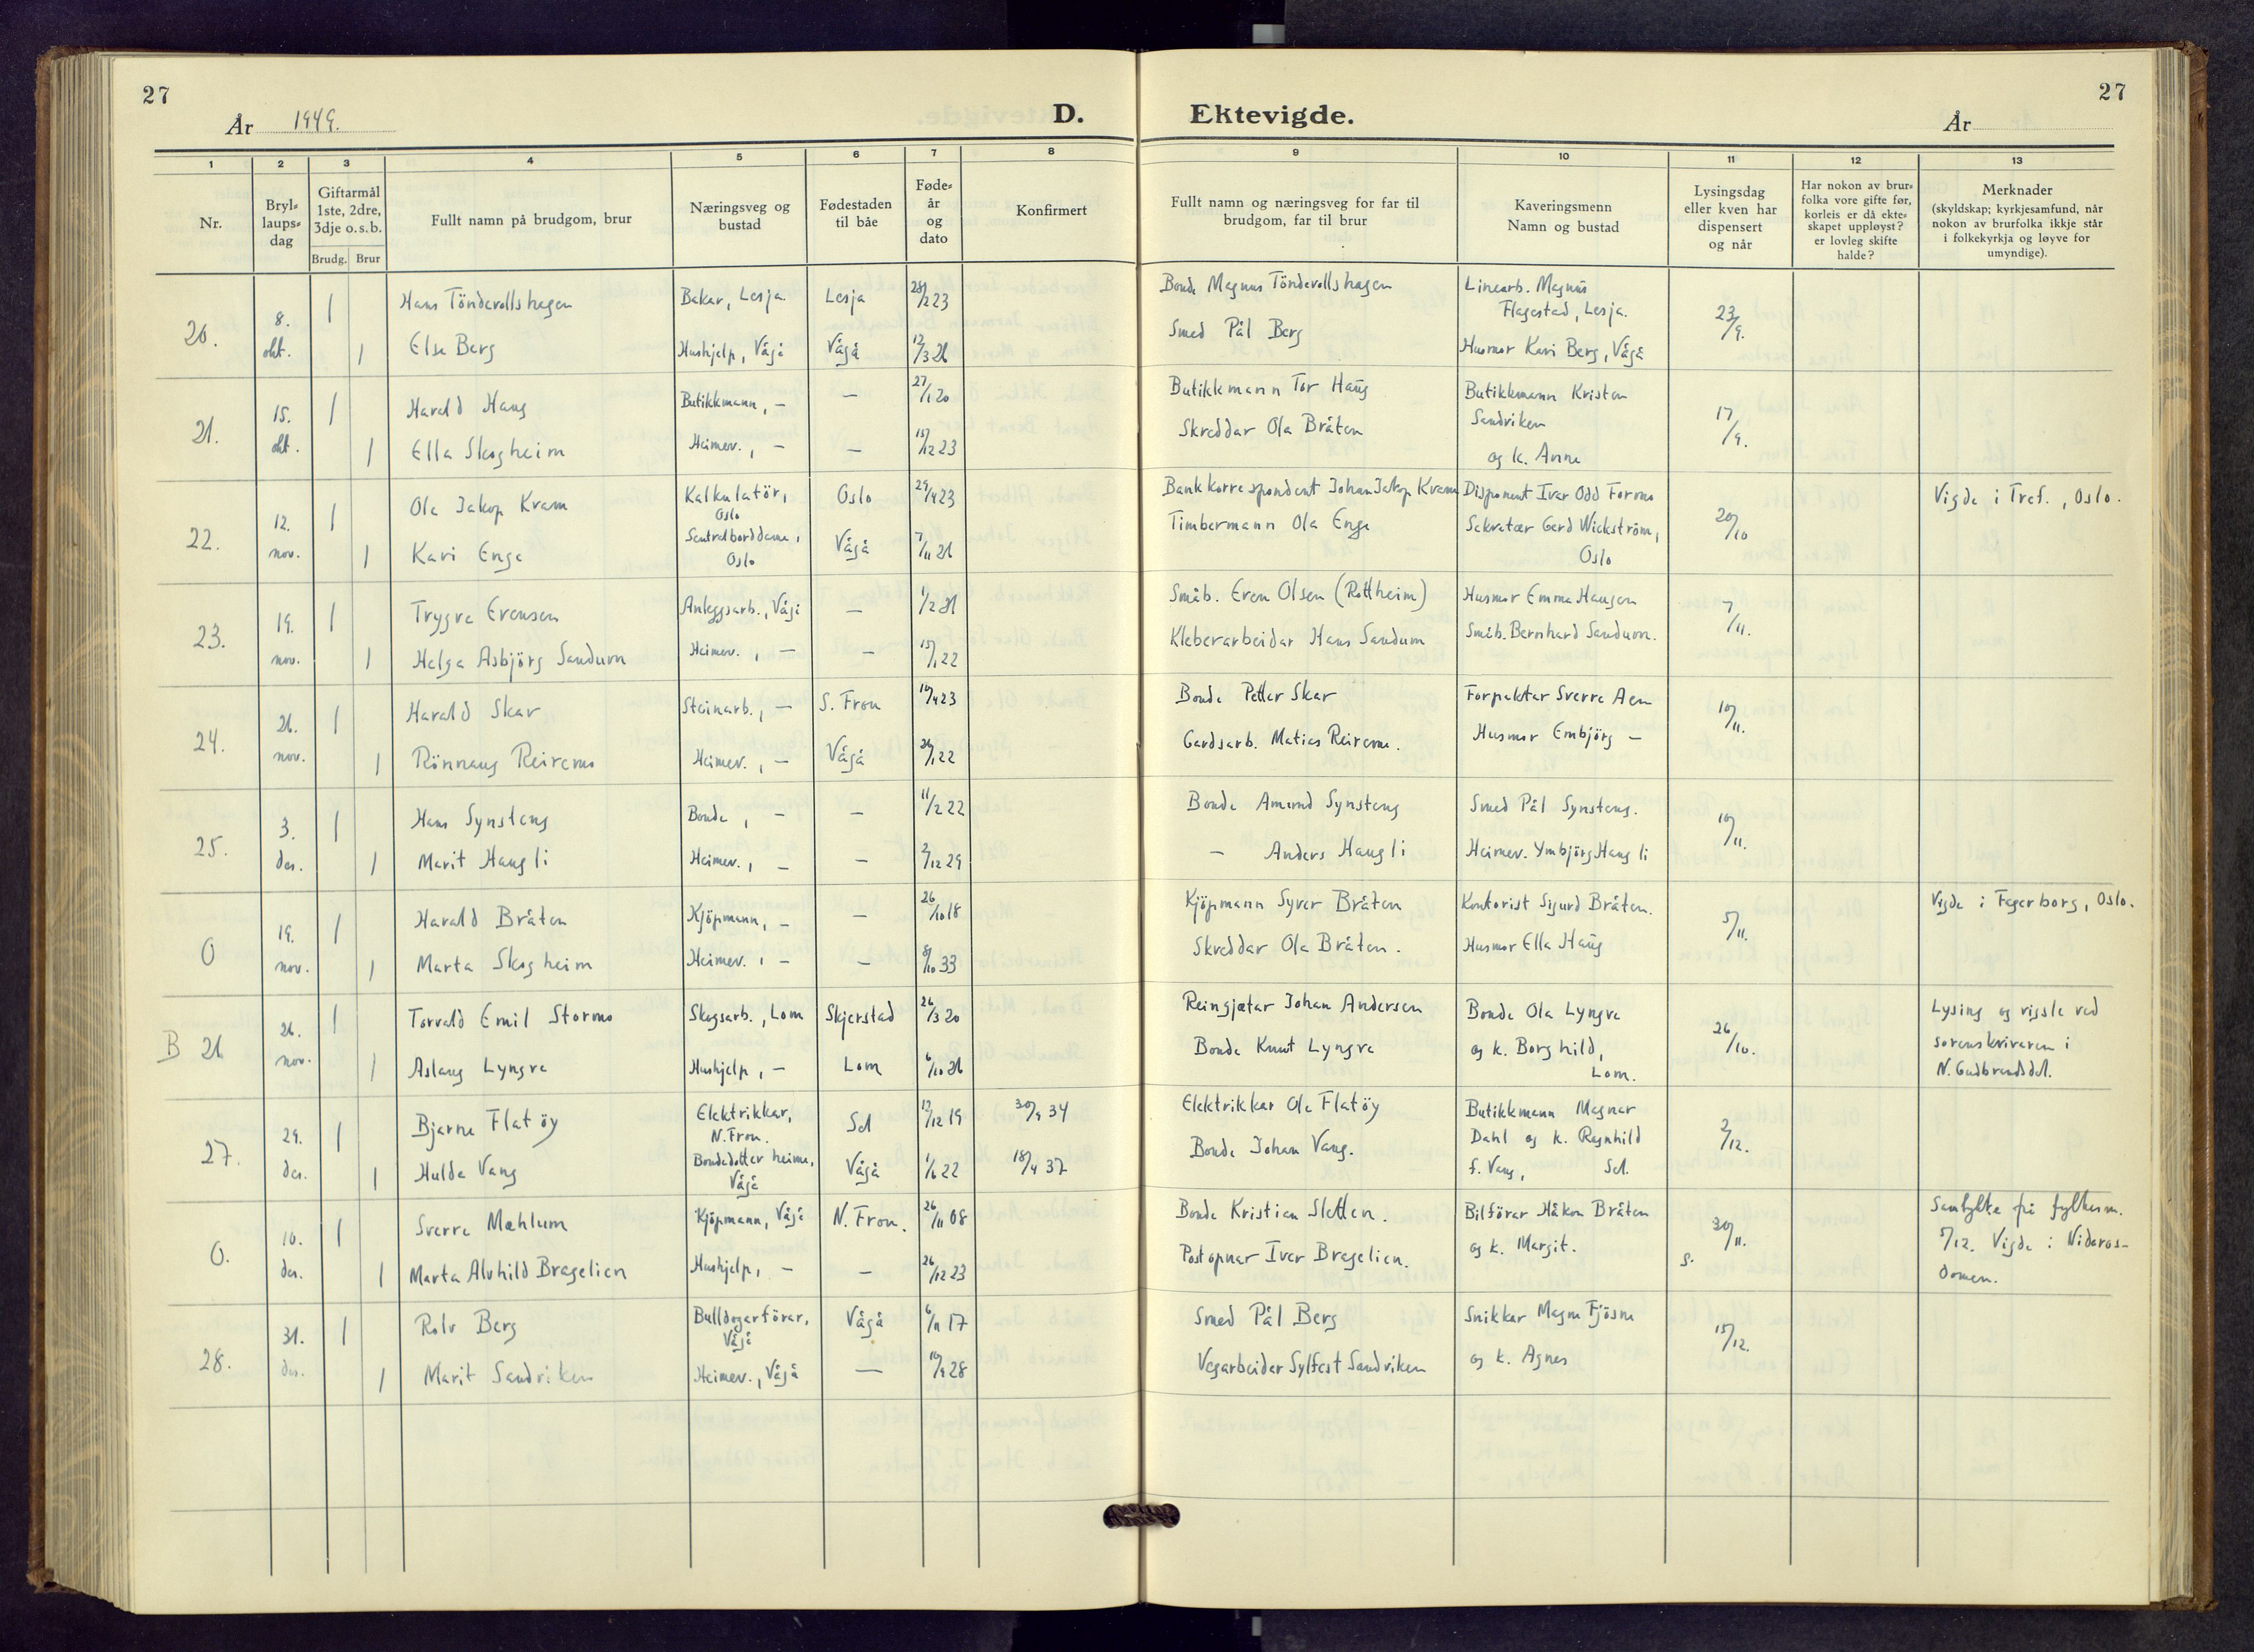 27
År 1949. D.
Ektevigde. År
27
1 2 3 4 5 6 7 8
9 10 11 12 13
Nr.
Bryl-
laups-
dag
Giftarmål
1ste, 2dre,
3dje o.s.b.
Brudg. Brur
Fullt namn på brudgom, brur
Næringsveg og
bustad
Fødestaden
til båe
Føde-
år
og
dato
Konfirmert
Fullt namn og næringsveg for far til
brudgom, far til brur
Kaveringsmenn
Namn og bustad
Lysingsdag
eller kven har
dispensert
og når
Har nokon av brur-
folka vore gifte før,
korleis er då ekte-
skapet uppløyst?
er lovleg skifte
halde?
Merknader
(skyldskap; kyrkjesamfund, når
nokon av brurfolka ikkje står
i folkekyrkja og løyve for
umyndige).
20. 8. okt. | Hans Töndevollshagen Bakar, Lesja Lesja 28/12 23 Bonde Magnus Töndevollshagen Linearb. Magnus
Flagestad, Lesja. 23/9.
| Else Berg Hushjelp, Vågå Vågå 12/3 26 Smed Pål Berg Husmor Kari Berg, Vågå
21. 15. okt. | Harald Haug Butikkmann, — — 27/1 20 Butikkmann Tor Haug Butikkmann Kristen
Sandviken 17/9.
| Ella Skogheim Heimev., — — 15/12 23 Skreddar Ola Bråten og k. Anne
22. 12. nov. | Ola Jakop Kvam Kalkulatör,
Oslo Oslo 29/4 23 Bankkorrespondent Johan Jakop Kvam Disponent Ivar Odd Formo 20/10 Vigde i Tref., Oslo.
| Kari Enge Sentralborddame,
Oslo Vågå 7/11 21 Timbermann Ola Enge Sekretær Gerd Wickström,
Oslo
23. 19. nov. | Trygve Evensen Anleggsarb., Vågå — 1/2 21 Småb. Even Olsen (Rottheim) Husmor Emma Haugen 7/11.
| Helga Asbjörg Sandum Heimev., — — 15/1 22 Kleberarbeidar Hans Sandum Småb. Bernhard Sandum.
24. 26. nov. | Harald Skar Steinarb., — S. Fron 10/4 23 Bonde Petter Skar Forpaktar Sverre Aen 10/11.
| Rönnaug Reiremo Heimev., — Vågå 26/1 22 Gardsarb. Matias Reiremo. Husmor Embjörg —
25. 3. des. | Hans Synsteng Bonde, — — 11/2 22 Bonde Amund Synsteng Smed Pål Synsteng. 10/11.
| Marit Haugli Heimev., — — 2/12 29 — Anders Haugli Heimev. Ymbjörg Haugli
0 19. nov. | Harald Bråten Kjöpmann, — — 26/10 18 Kjöpmann Syver Bråten Kontorist Sigurd Bråten. 5/11. Vigde i Fagerborg, Oslo.
| Marta Skogheim Heimev., — — 8/10 33 Skreddar Ola Bråten. Husmor Ella Haug
B 26 26. nov. | Torvald Emil Stormo Skogsarb., Lom Skjerstad 26/3 20 Reingjætar Johan Andersen Bonde Ola Lyngve 26/10. Lysing og vigsle ved
sorenskrivaren i
N. Gudbrandsdal.
| Aslaug Lyngve Hushjelp, — Lom 6/10 26 Bonde Knut Lyngve og k. Borghild,
Lom.
27. 29. des. | Bjarne Flatöy Elektrikkar,
N. Fron. Sel 12/12 19 30/9 34 Elektrikkar Ole Flatöy Butikkmann Magnar
Dahl og k. Ragnhild
f. Vang, Sel. 2/12.
| Hulda Vang Bondedotter heime,
Vågå Vågå 1/6 22 18/4 37 Bonde Johan Vang.
0. 10. des. | Sverre Mæhlum Kjöpmann, Vågå N. Fron. 26/11 08 Bonde Kristian Sletten. Bilförar Håkon Bråten
og k. Margit. 30/11. S. Samtykke frå fylkesm.
5/12. Vigde i Nidaros-
domen.
| Marta Alvhild Bragelien Hushjelp, — — 26/12 23 Postopnar Iver Bragelien.
28. 31. des. | Rolv Berg Bulldogarförar,
Vågå Vågå 6/11 17 Smed Pål Berg Snikkar Magne Fjösne 15/12.
| Marit Sandviken Heimev., Vågå — 10/9 28 Vegarbeidar Sylfest Sandviken og k. Agnes